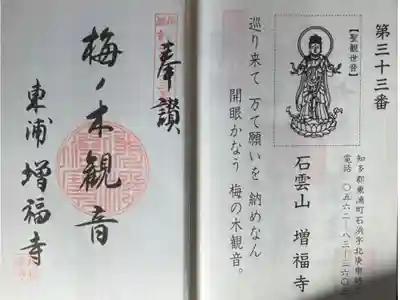 第三十三番
【聖観世音】
石雲山 増福寺
知多郡東浦町石浜字北庚申坊
電話 〇五六二―八三―二六〇
巡り来て 万て願いを 納めなん
開眼かなう 梅の木観音。
奉讃
梅ノ木観音
東浦 増福寺